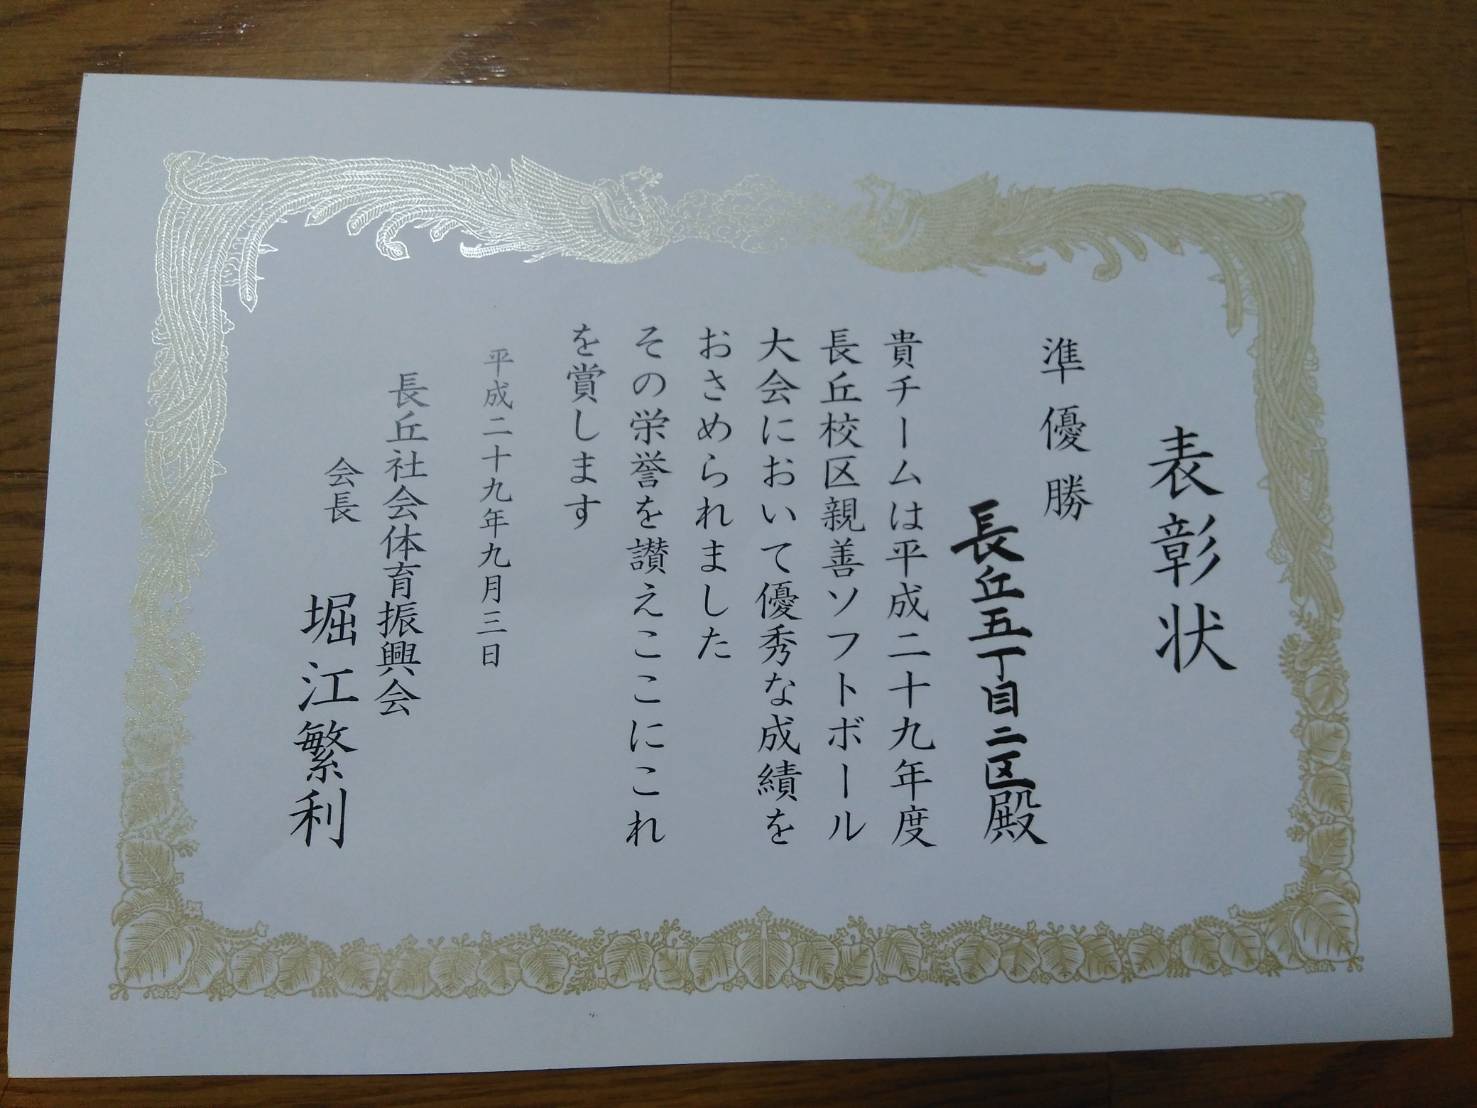 表彰状
準優勝
長丘五丁目二区殿
貴チームは平成二十九年度
長丘校区親善ソフトボール
大会において優秀な成績を
おさめられました
その栄誉を讃えここにこれ
を賞します
平成二十九年九月三日
長丘社会体育振興会
会長 堀江繁利